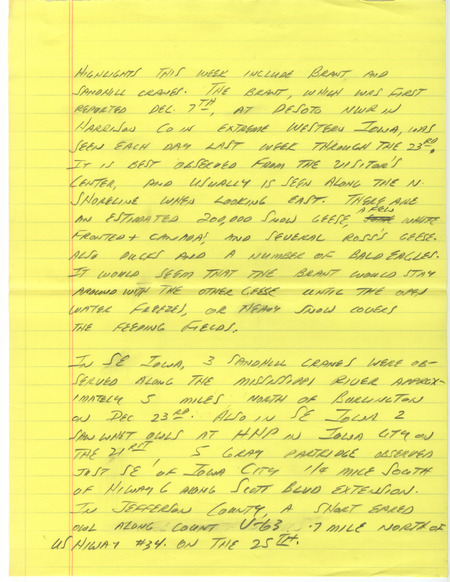 HIGHLIGHTS THIS WEEK INCLUDE BRANT, AND
SANDHILL CRANES. THE BRANT, WHICH WAS FIRST
REPORTED DEC. 7TH, AT DESOTO NWR IN
HARRISON CO IN EXTREME WESTERN IOWA, WAS
SEEN EACH DAY LAST WEEK THROUGH THE 23RD.
IT IS BEST OBSERVED FROM THE VISITOR'S
CENTER, AND USUALLY IS SEEN ALONG THE N.
SHORELINE WHEN LOOKING EAST. THERE ARE
AN ESTIMATED 200,000 SNOW GEESE, A FEW WHITE
FRONTED + CANADA, AND SEVERAL ROSS'S GEESE.
ALSO DUCKS AND A NUMBER OF BALD EAGLES.
IT WOULD SEEM THAT THE BRANT WOULD STAY
AROUND WITH THE OTHER GEESE UNTIL THE OPEN
WATER FREEZES, OR HEAVY SNOW COVERS
THE FEEDING FIELDS.
IN SE IOWA, 3 SANDHILL CRANES WERE OB-
SERVED ALONG THE MISSISSIPPI RIVER APPROX-
IMATELY 5 MILES NORTH OF BURLINGTON
ON DEC 23RD. ALSO IN SE IOWA 2
SAW WHET OWLS AT HHP IN IOWA CITY ON
THE 21ST, 5 GRAY PARTRIDGE OBSERVED
JUST SE OF IOWA CITY 1/4 MILE SOUTH
OF HIWAY 6 ALONG SCOTT BLVD EXTENSION.
IN JEFFERSON COUNTY, A SHORT EARED
OWL ALONG COUNT V-63 .7 MILE NORTH OF
US HIWAY #34. ON THE 25TH.